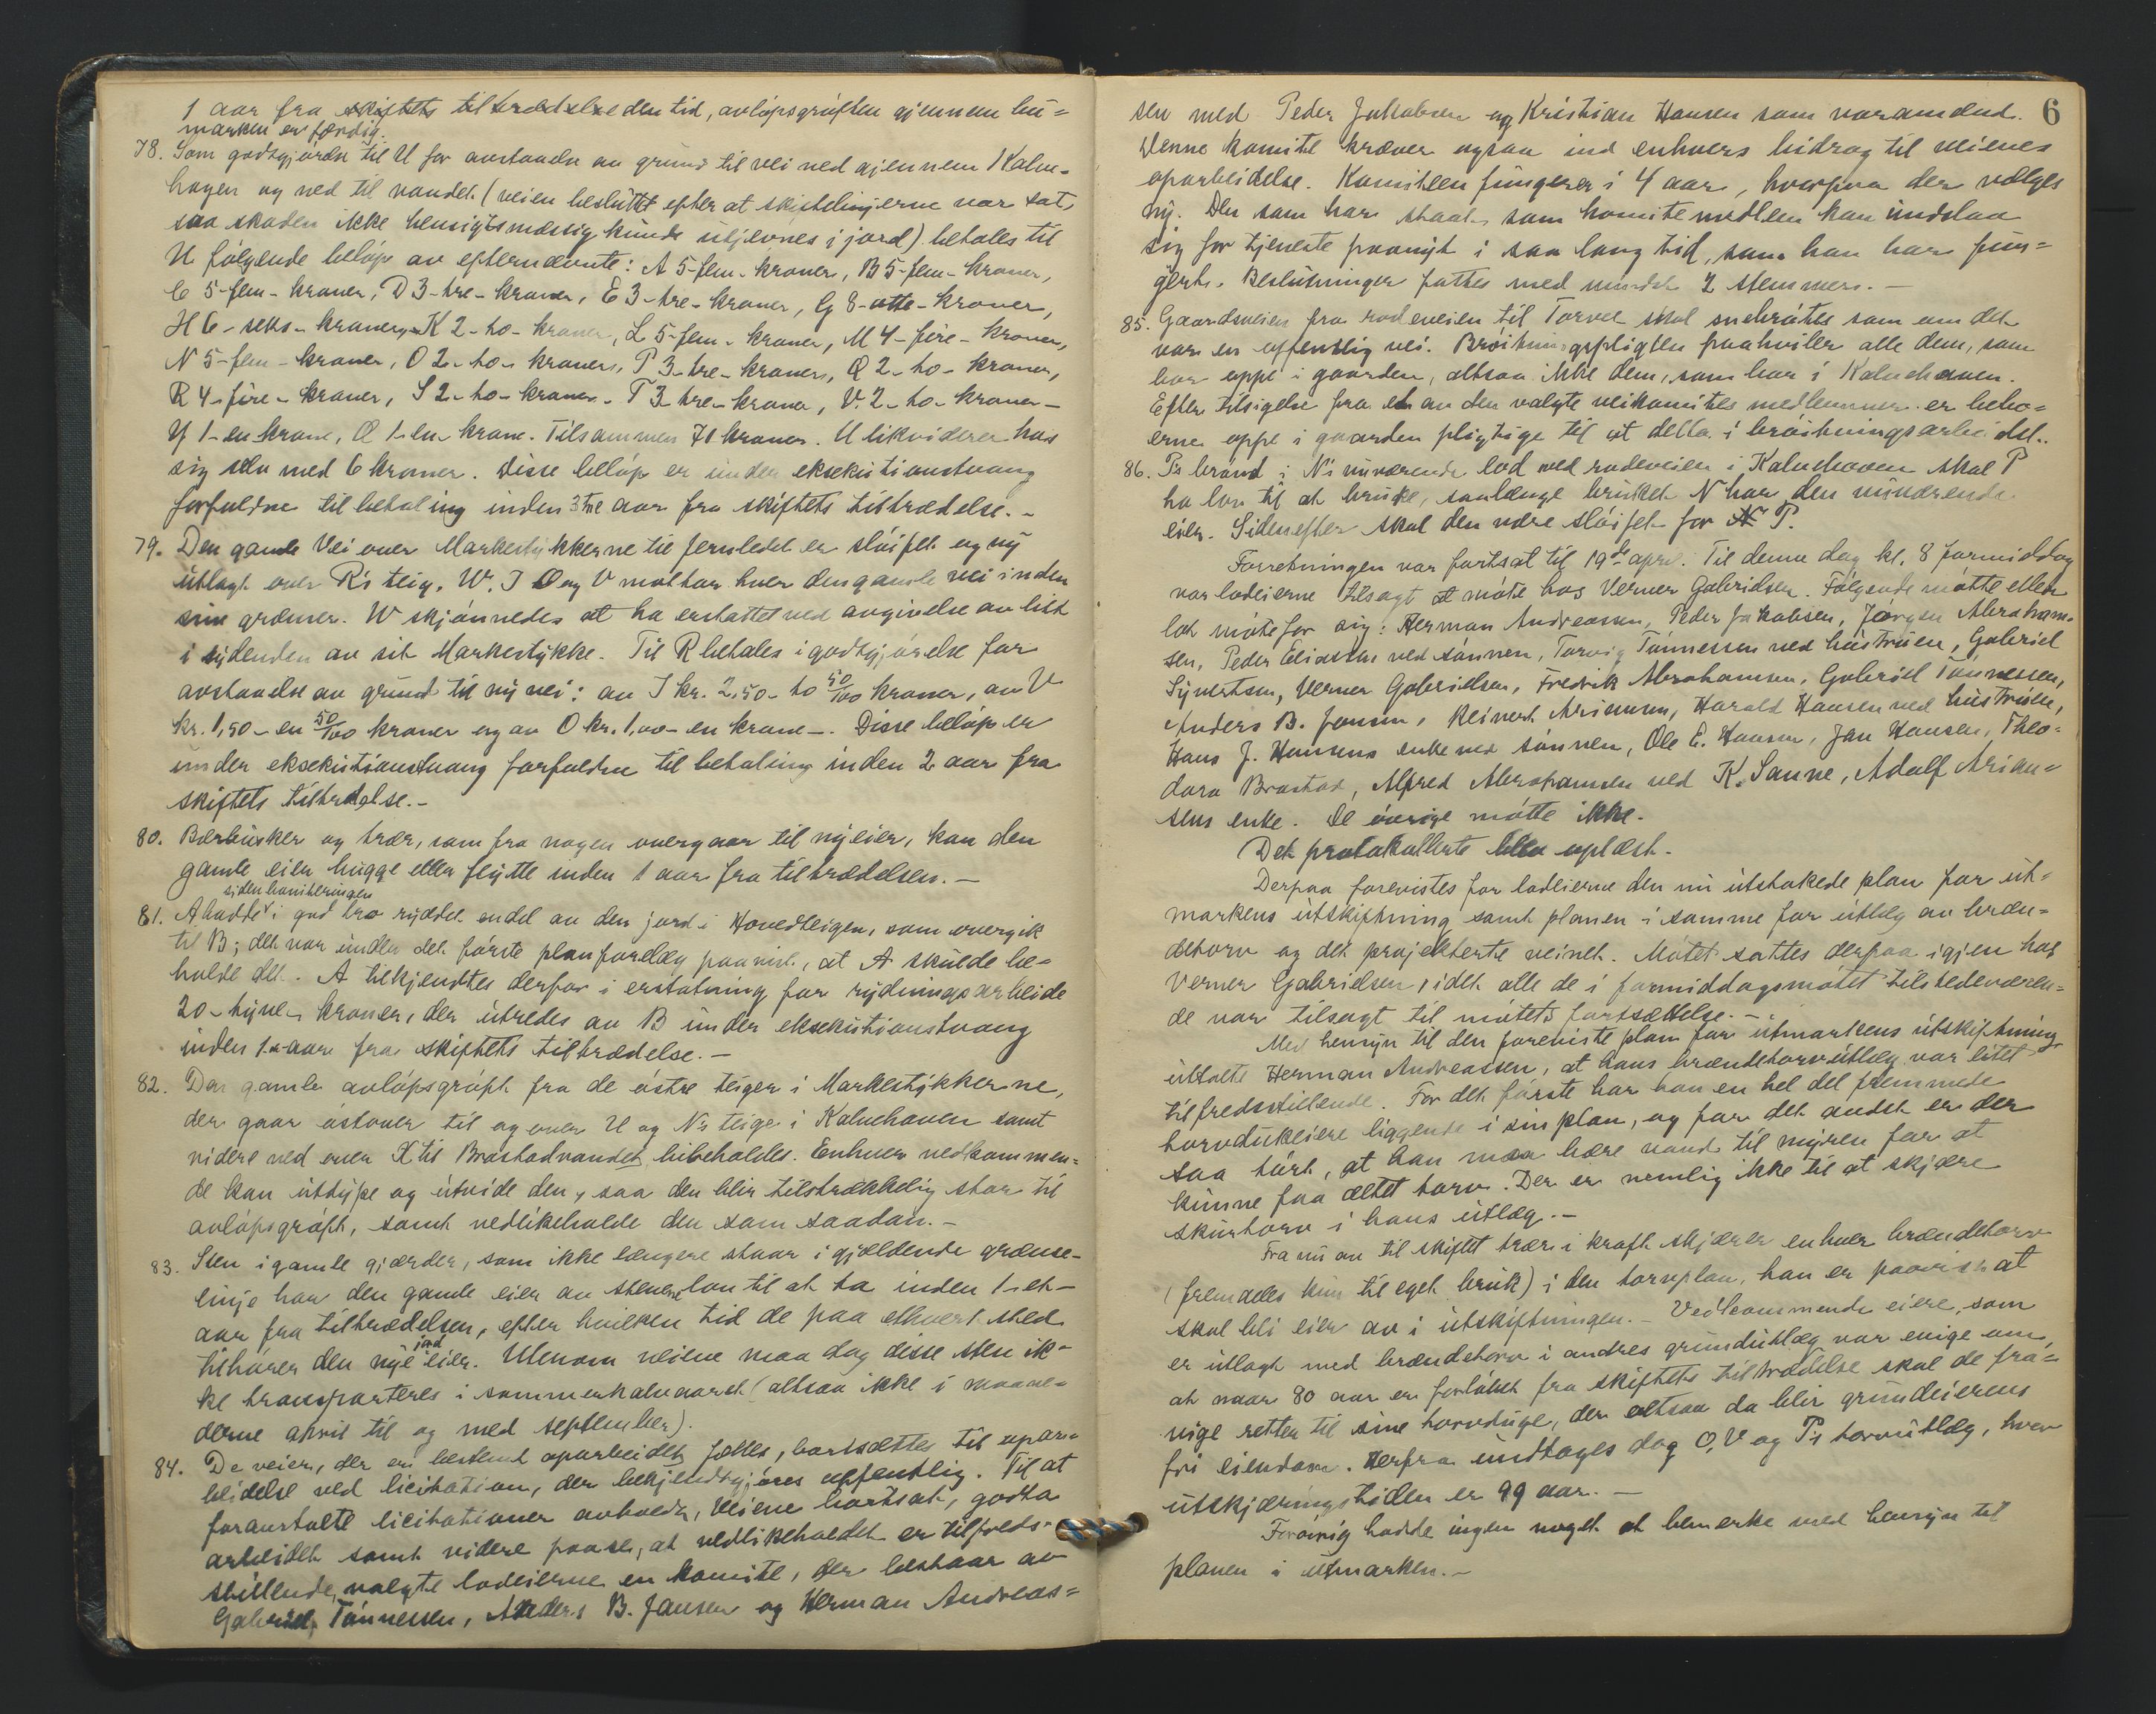 1 aar fra skiftets tiltrædelse den tid, avløpsgrøften gjennem bu=
marken er færdig.
78. Som godtgjørelse til U for avstaaelse av grund til vei ned gjennem Kalve-
hagen og ned til vandet (veien besluttet efter at skiftelinjerne var sat,
saa skaden ikke hensigtsmæssig kunde utjevnes i jord) betales til
U følgende beløp av efternævnte: A 5-fem-kroner, B 5-fem-kroner,
C 5-fem-kroner, D 3-tre-kroner, E 3-tre-kroner, G 8-otte-kroner,
H 6-seks-kroner, K 2-to-kroner, L 5-fem-kroner, M 4-fire-kroner,
N 5-fem-kroner, O 2-to-kroner, P 3-tre-kroner, Q 2-to-kroner,
R 4-fire-kroner, S 2-to-kroner, T 3-tre-kroner, V. 2-to-kroner-
Y 1-en krone, Æ 1-en-krone. Tilsammen 71 kroner. U likviderer hos
sig selv med 6 kroner. Disse beløp er under eksekutionstvang
forfaldne til betaling inden 3 tre aar fra skiftets tiltrædelse.-
79. Den gamle vei over Markestykkerne til fernledet er sløifet og ny
utlagt over R's teig. W. I O og V mottar hver den gamle vei inden
sine grænser. W skjønnedes at ha erstattet ved avgivelse av litt
i sydenden av sit Markestykke. Til R betales i godtgjørelse for
avstaaelse av grund til ny vei: av I kr. 2,50- to 50/100 kroner, av V
kr. 1,50- en 50/100 kroner og av O kr. 1,00- en krone-. Disse beløp er
under eksekutionstvang forfaldne til betaling inden 2 aar fra
skiftets tiltrædelse.-
80. Bærbusker og trær, som fra nogen overgaar til ny eier, kan den
gamle eier hugge eller flytte inden 1 aar fra tiltrædelsen.-
siden boniteringen
81. A hadde i god tro ryddet endel av den jord i Hovedteigen, som overgik
til B; det var under det første planforelæg paavist, at A skulde be-
holde det. A tilkjendtes derfor i erstatning for rydningsarbeide
20-tyve-kroner, der utredes av B under eksekutionstvang
inden 1-aar fra skiftets tiltrædelse.-
82. Den gamle avløpsgrøft fra de østre teiger i Markestykkerne,
der gaar østover til og over U og N's teige i Kalvehaven samt
videre ned over X til Brastadvandet bibeholdes. Enhver vedkommen=
de kan utdype og utvide den, saa den blir tilstrækkelig stor til
avløpsgrøft, samt vedlikeholde den som saadan.-
83. Sten i gamle gjærder, som ikke længere staar i gjældende grænse-
linje har den gamle eier av stenene lov til at ta inden 1-et-
aar fra tiltrædelsen, efter hvilken tid de paa ethvert sted
jord
tilhører den nye eier. Utenom veiene maa dog disse sten ik-
ke transporteres i sommerhalvaaret (altsaa ikke i maane-
derne april til og med september).
84. De veier, der er bestemt oparbeidet fælles, bortsættes til opar-
beidelse ved licitation, der bekjendtgjøres offentlig. Til at
foranstalte licitationer avholdt, veiene bortsat, godta
arbeidet samt videre paase, at vedlikeholdet er tilfreds-
stillende, valgte lodeierne en komite, der bestaar av
Gabriel Tønnessen, Anders B. Jansen og Herman Andreas=
6
sen med Peder Jakobsen og Kristian Hansen som varamænd.
Denne komite kræver ogsaa ind enhvers bidrag til veienes
oparbeidelse. Komiteen fungerer i 4 aar, hvorpaa der vælges
ny. Den som har staat som komitemedlem kan undslaa
sig for tjeneste paanyt i saa lang tid, som han har fun=
gert. Beslutninger fattes med mindst 2 stemmer.-
85. Gaardsveien fra rodeveien til Torvet skal snebrøites som om det
var en offentlig vei. Brøitningspligten paahviler alle dem, som
bor oppe i gaarden, altsaa ikke dem, som bor i Kalvehaven.
Efter tilsigelse fra et av den valgte veikomites medlemmer er bebo=
erne oppe i gaarden pligtige til at delta i brøitningsarbeidet.
86. P's brønd i N's nuværende lod ved rodeveien i Kalvehaven skal P
ha lov til at bruke, saalænge bruket N har den nuværende
eier. Sidenefter skal den være sløifet for P.
Forretningen var fortsat til 19de april. Til denne dag kl. 8 formiddag
var lodeierne tilsagt at møte hos Verner Gabrielsen. Følgende møtte eller
lot møte for sig: Herman Andreassen, Peder Jakobsen, Jørgen Abraham-
sen, Peder Eliassen ved sønnen, Torvig Tønnessen ved hustruen, Gabriel
Syvertsen, Verner Gabrielsen, Fredrik Abrahamsen, Gabriel Tønnessen,
Anders B. Jensen, Reinert Ariansen, Harald Hansen ved hustruen,
Hans J. Hansens enke ved sønnen, Ole E. Hansen, Jan Hansen, Theo=
dora Brastad, Alfred Abrahamsen ved K. Sanne, Adolf Arian=
sens enke. De øvrige møtte ikke.
Det protokollerte blev oplæst.
Derpaa forevistes for lodeierne den nu utstakede plan for ut=
markens utskiftning samt planen i samme for utlæg av bræn=
detorv og det projekterte veinet. Møtet sattes derpaa igjen hos
Verner Gabrielsen, idet alle de i formiddagsmøtet tilstedeværen=
de var tilsagt til møtets fortsættelse.-
Med hensyn til den foreviste plan for utmarkens utskiftning
uttalte Herman Andreassen, at hans brændetorvutlæg var litet
tilfredsstillende. For det første har han en hel del fremmede
torvdukeiere liggende i sin plan, og for det andet er der
saa tørt, at han maa bære vand til myren for at
kunne faa æltet torv. Der er nemlig ikke til at skjære
skurtorv i hans utlæg.-
Fra nu av til skiftet trær i kraft skjærer enhver brændetorv
(fremdeles kun til eget bruk) i den torvplan, han er paavist at
skal bli eier av i utskiftningen.- Vedkommende eiere, som
er utlagt med brændetorv i andres grundutlæg var enige om,
at naar 80 aar er forløbet fra skiftets tiltrædelse skal de fra=
vige retten til sine torvduge, der altsaa da blir grundeierens
fri eiendom. Herfra undtages dog O, V og P's torvutlæg, hvor
utskjæringstiden er 99 aar.-
Forøvrig hadde ingen noget at bemerke med hensyn til
planen i utmarken.-